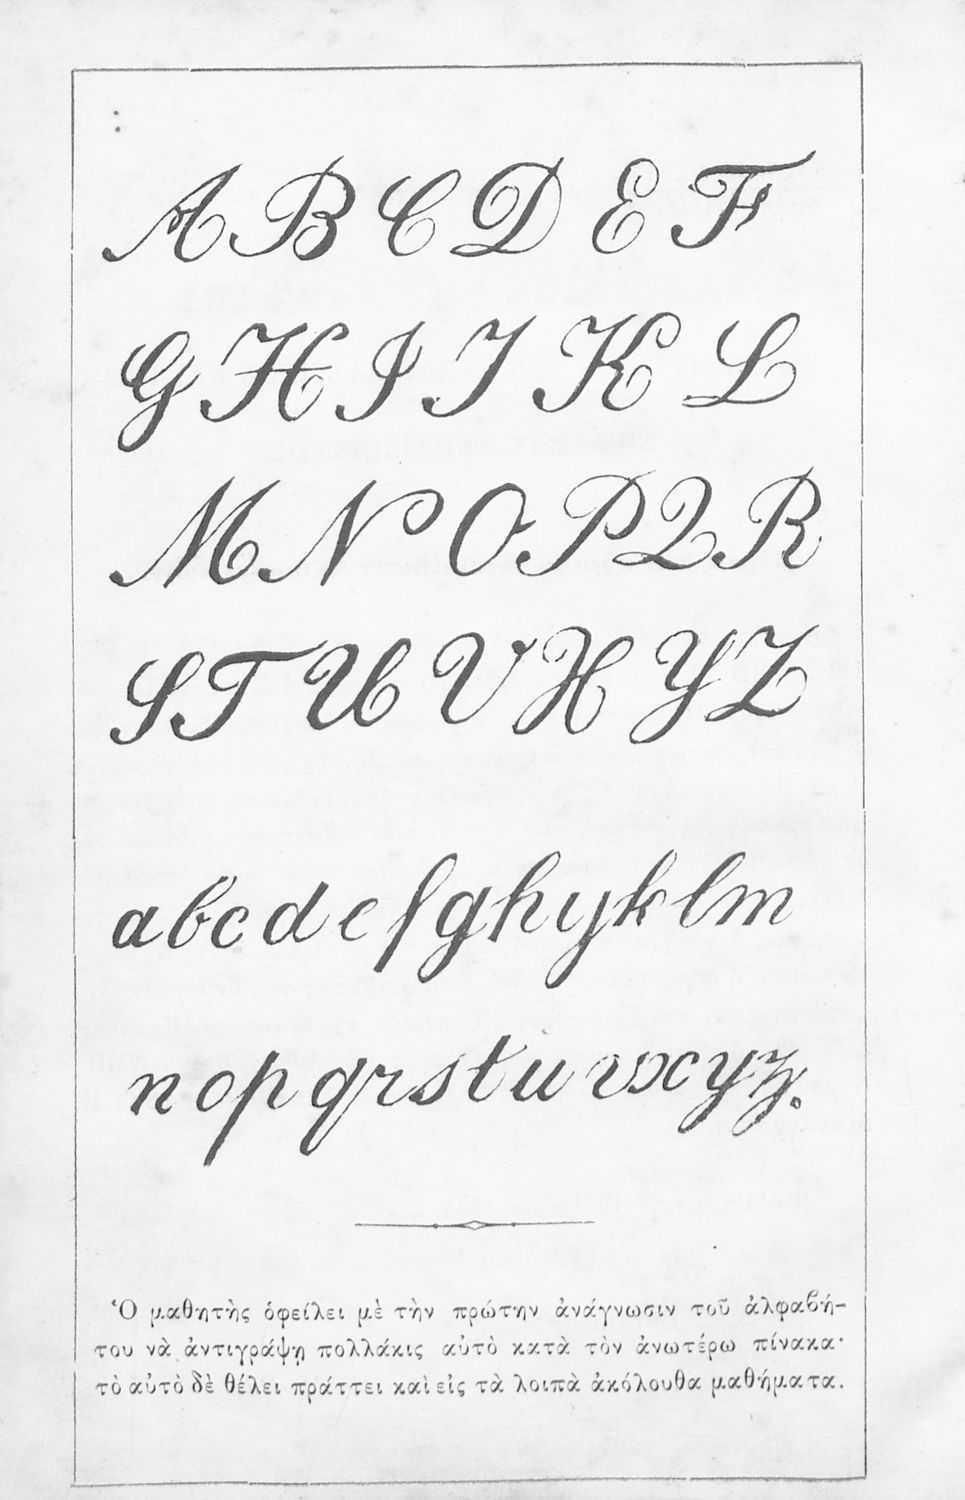 A B C D E F
G H I J K L
M N O P Q R
S T U V X Y Z
a b c d e f g h y k l m
n o p q r s t u v x y z.
Ὁ μαθητὴς ὀφείλει μὲ τὴν πρώτην ἀνάγνωσιν τοῦ ἀλφαβή-
του νὰ ἀντιγράψῃ πολλάκις αὐτὸ κατὰ τὸν ἀνωτέρω πίνακα·
τὸ αὐτὸ δὲ θέλει πράττει καὶ εἰς τὰ λοιπὰ ἀκόλουθα μαθήματα.